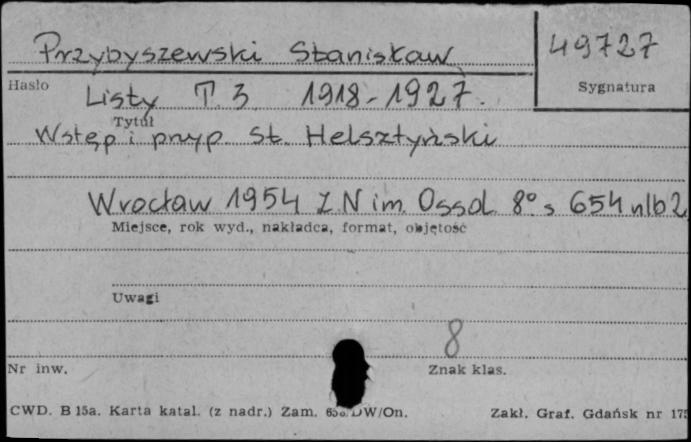 Przybyszewski Stanisław 49727
Hasło Sygnatura
Listy T. 3 1918-1927.
Tytuł
Wstęp i przyp. St. Helsztyński
Wrocław 1954 Z N im. Ossol. 8° s 654 nlb 2
Miejsce, rok wyd., nakładca, format, objętość
Uwagi
8
Nr inw. Znak klas.
CWD. B 15a. Karta katal. (z nadr.) Zam. DW/On. Zakł. Graf. Gdańsk nr